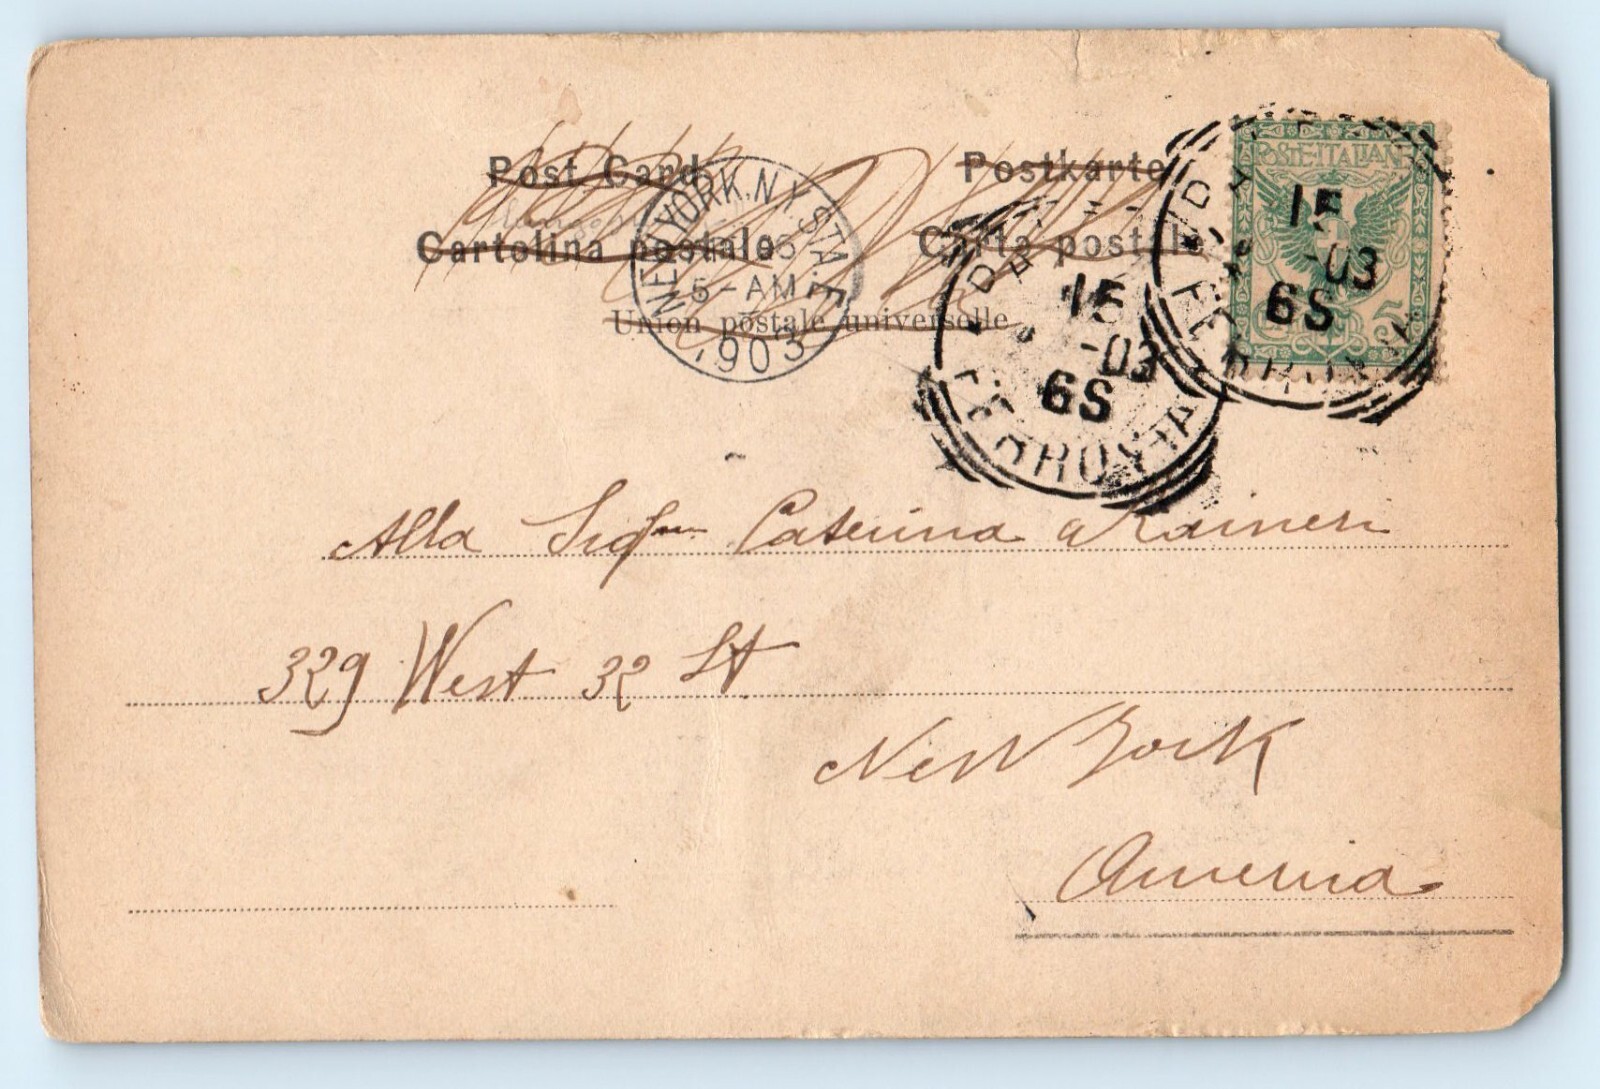 Post Card Postkarte
Cartolina postale Carta postale
Union postale universelle
NEW YORK, N.Y. STA. E
5-AM
1903
POSTE ITALIANE
5
15
-03
6S
15
-03
6S
FERROVIA
Alla Caterina
329 West 32 St
New York
America